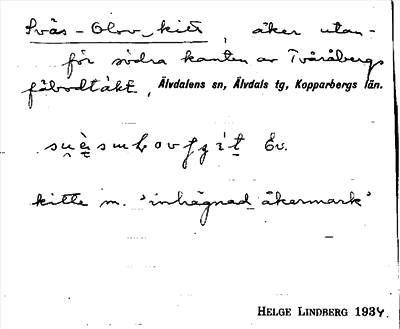 Svås-Olov_kitt, åker utan-
för södra kanten av Tvåråbergs
fäbodtäkt, Älvdalens sn, Älvdals tg, Kopparbergs län.
Ev.
kitte m. 'inhägnad åkermark'
HELGE LINDBERG 1934.